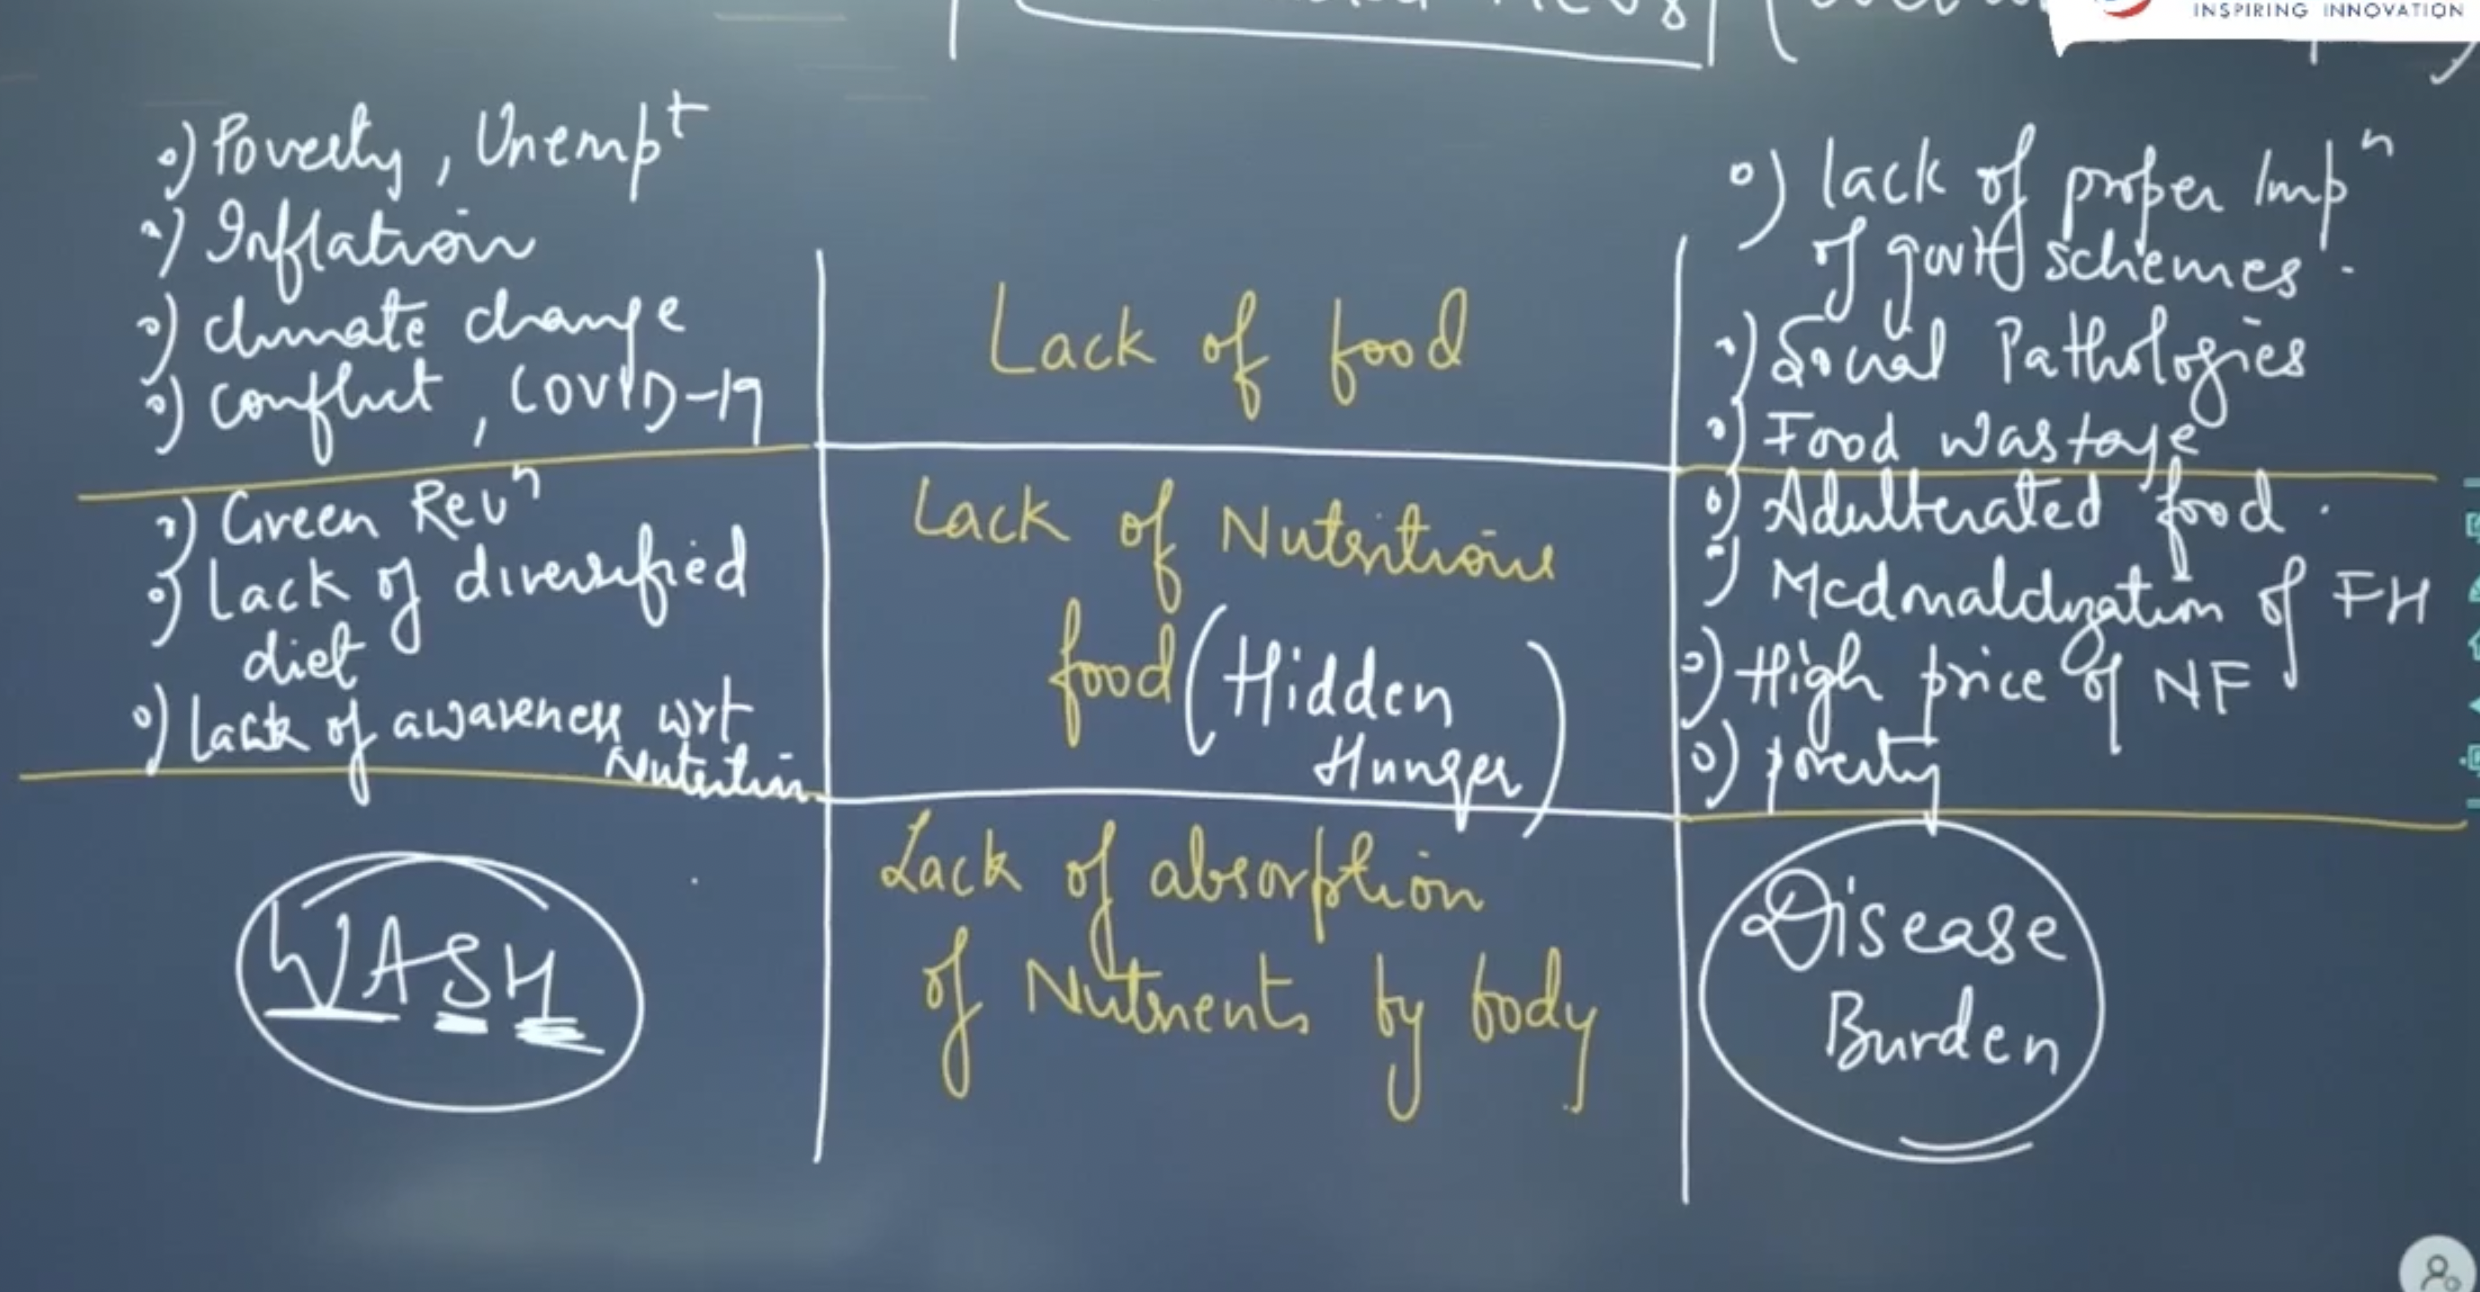 INSPIRING INNOVATION
o) Poverty, Unempt
o) Inflation
o) climate change
o) conflict, COVID-19
Lack of food
o) lack of proper Impn
of govt schemes.
o) Social Pathologies
o) Food Wastage
o) Green Revn
o) Lack of diversified
diet
o) Lack of awareness wrt
Nutrition
Lack of Nutritious
food (Hidden
Hunger)
o) Adulterated food.
o) Mcdonaldization of FH
o) High price of NF
o) poverty
WASH
Lack of absorption
of Nutrients by body
Disease
Burden